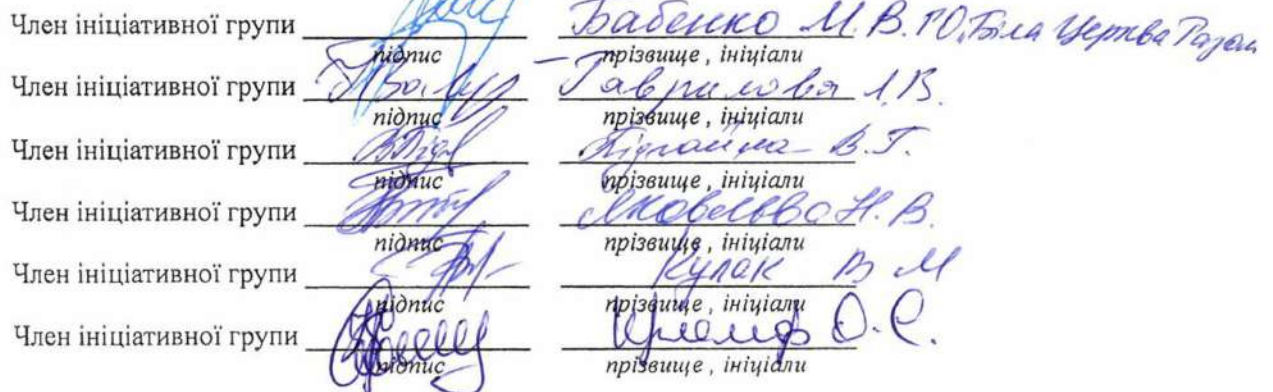 Член ініціативної групи Бабенко М. В. ГО, Біла Церква Разом
підпис прізвище , ініціали
Член ініціативної групи Гаврилова Л.В.
підпис прізвище , ініціали
Член ініціативної групи В. Г.
підпис прізвище , ініціали
Член ініціативної групи Яковлєва Н. В.
підпис прізвище , ініціали
Член ініціативної групи Кулак В М
підпис прізвище , ініціали
Член ініціативної групи О. С.
підпис прізвище , ініціали